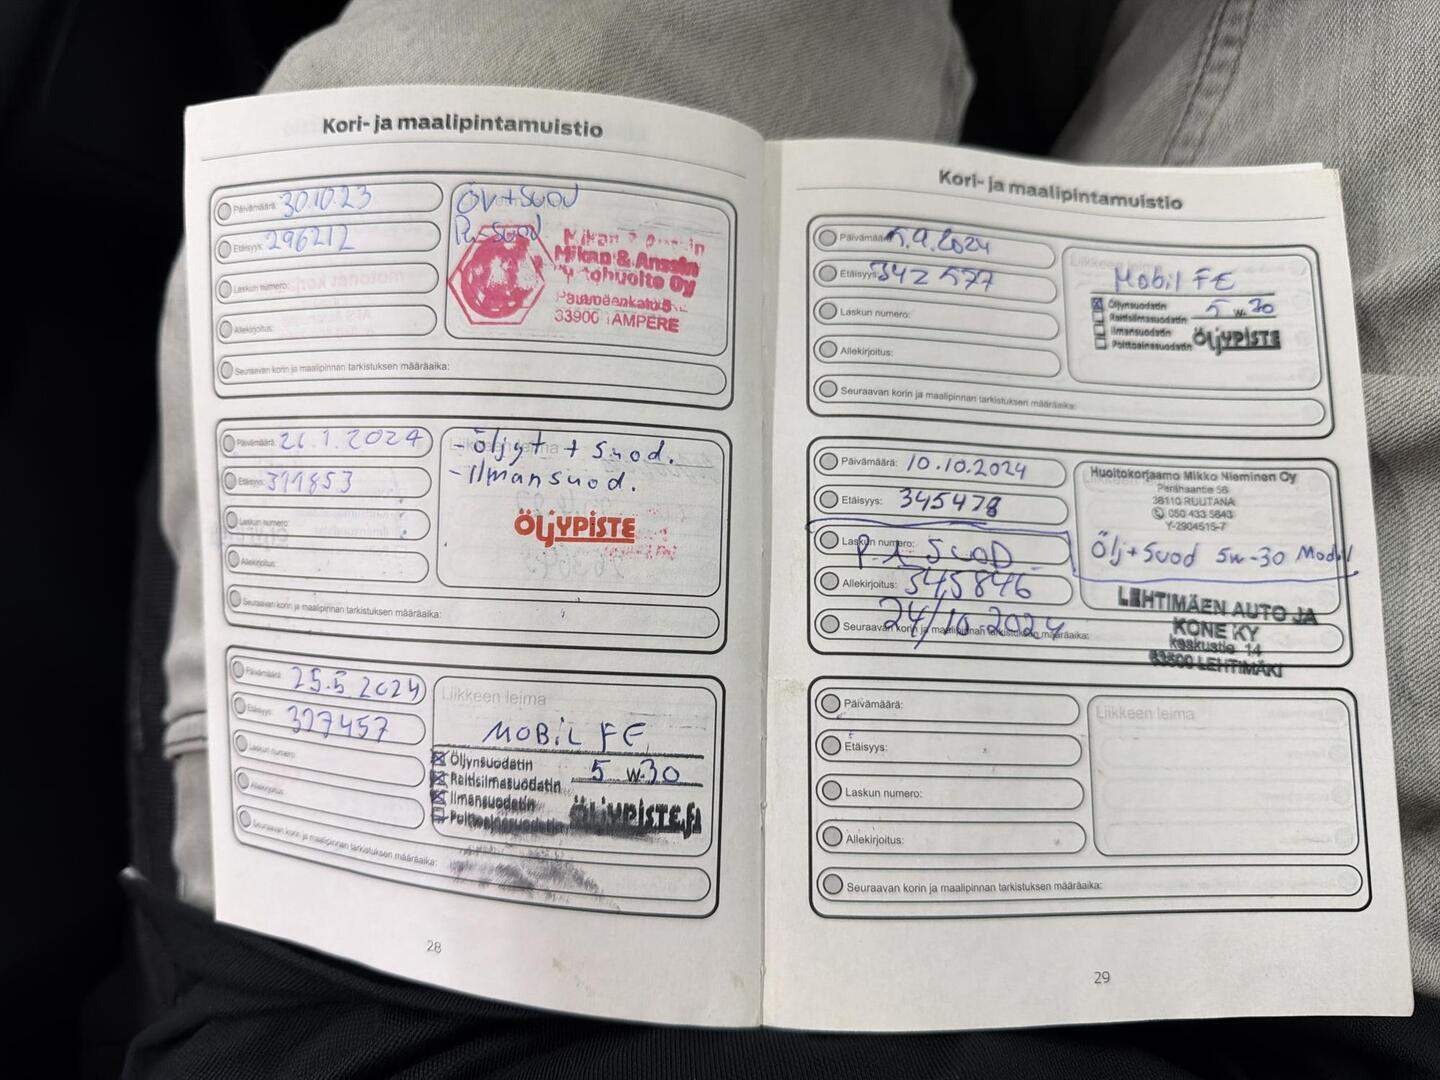 Kori- ja maalipintamuistio
Päivämäärä: 30.10.23
Etäisyys: 296212
Laskun numero:
Allekirjoitus:
ÖV+SUOD
Pu-SUOD
Mikan & Anssin
Mikan & Anssin
Autohuolto Oy
33900 TAMPERE
Seuraavan korin ja maalipinnan tarkistuksen määräaika:
Päivämäärä: 26.1.2024
Etäisyys: 311853
Laskun numero:
Allekirjoitus:
Liikkeen leima
-öljyt + Suod.
-Ilmansuod.
ÖLJYPISTE
Seuraavan korin ja maalipinnan tarkistuksen määräaika:
Päivämäärä: 25.5 2024
Etäisyys: 327457
Laskun numero:
Allekirjoitus:
Liikkeen leima
MOBIL FE
Öljynsuodatin
Raitisilmasuodatin
5 W-30
Ilmansuodatin
Polttoainesuodatin
ÖLJYPISTE.fi
Seuraavan korin ja maalipinnan tarkistuksen määräaika:
28
Kori- ja maalipintamuistio
Päivämäärä: 5.9.2024
Etäisyys: 342 577
Laskun numero:
Allekirjoitus:
Liikkeen leima
Mobil FE
Öljynsuodatin
Raitisilmasuodatin
5 W-30
Ilmansuodatin
Polttoainesuodatin
ÖLJYPISTE
Seuraavan korin ja maalipinnan tarkistuksen määräaika:
Päivämäärä: 10.10.2024
Etäisyys: 345478
Laskun numero:
P-A SUOD
Allekirjoitus: 345846
Seuraavan korin ja maalipinnan tarkistuksen määräaika:
24/10.2024
Huoltokorjaamo Mikko Nieminen Oy
Perähaantie 56
36110 RUUTANA
050 433 5843
Y-2904515-7
Ölj+Suod 5w-30 Mobil
LEHTIMÄEN AUTO JA
KONE KY
keskustie 14
63500 LEHTIMÄKI
Päivämäärä:
Etäisyys:
Laskun numero:
Allekirjoitus:
Liikkeen leima
Seuraavan korin ja maalipinnan tarkistuksen määräaika:
29